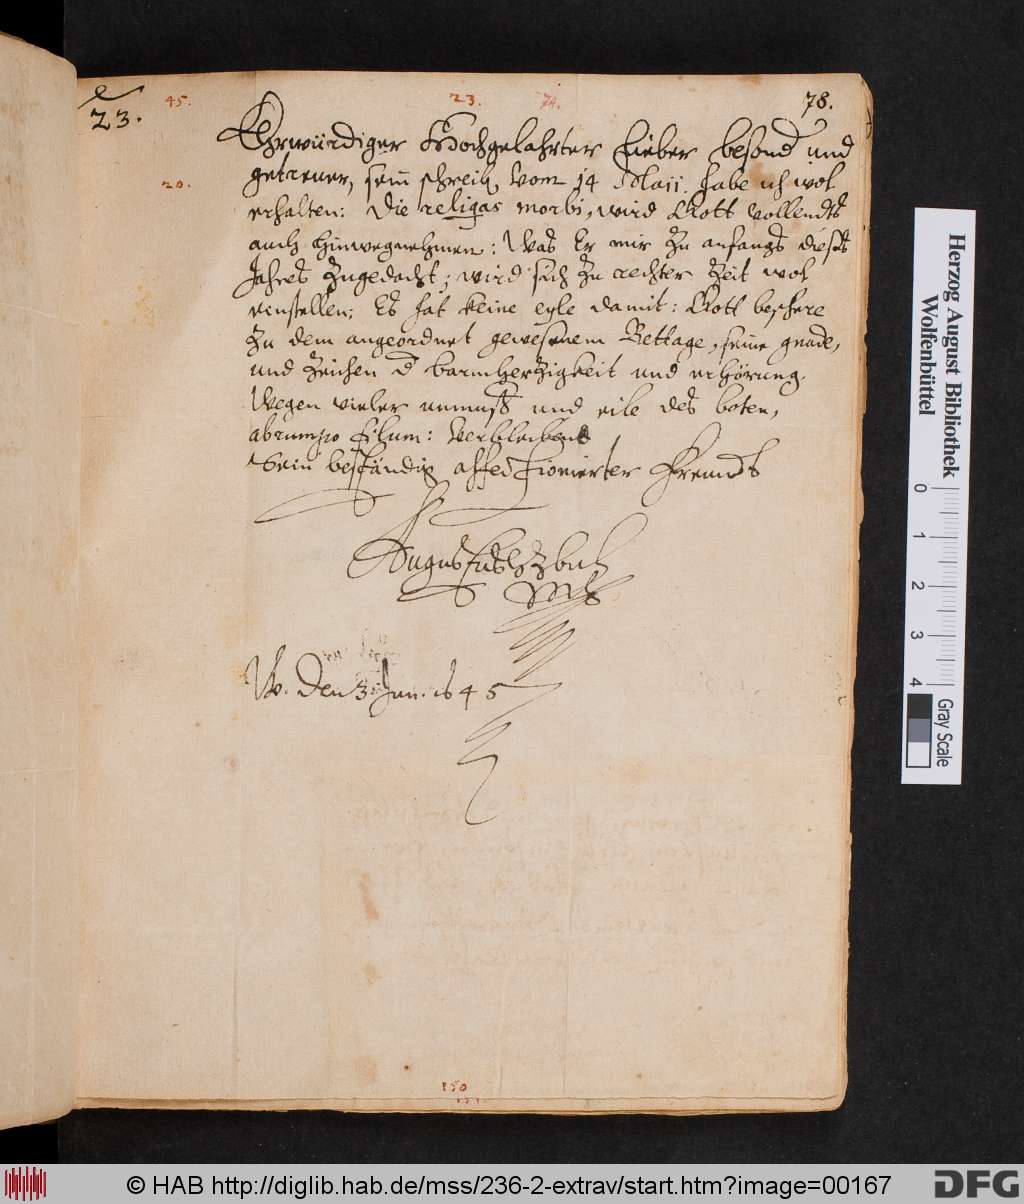 23.
45.
23.
74.
78.
Ehrwürdiger Hochgelahrter Lieber besond und
20.
getrewer, sein schreib. vom 14 Maii. habe ich wol
erhalten: Die religas morbi, wird Gott vollendts
auch hinwegnehmen: Was Er mir zu anfangs dieses
Jahres zugedacht; wird sich zu rechter Zeit wol
einstellen; Es hat keine eyle damit: Gott beschere
zu dem angeordnet gewesenem Bettage, seine gnade,
und Zeichen d barmherzigkeit und erhörung.
Wegen vieler unmuß und eile des boten,
abrumpo filum: Verbleibend
Sein beständig affectionierter Freundt
Augustus HzBuL
mp
W. den 3. Jun. 1645
150
151.
Herzog August Bibliothek
Wolfenbüttel
0 1 2 3 4
Gray Scale
© HAB http://diglib.hab.de/mss/236-2-extrav/start.htm?image=00167
DFG